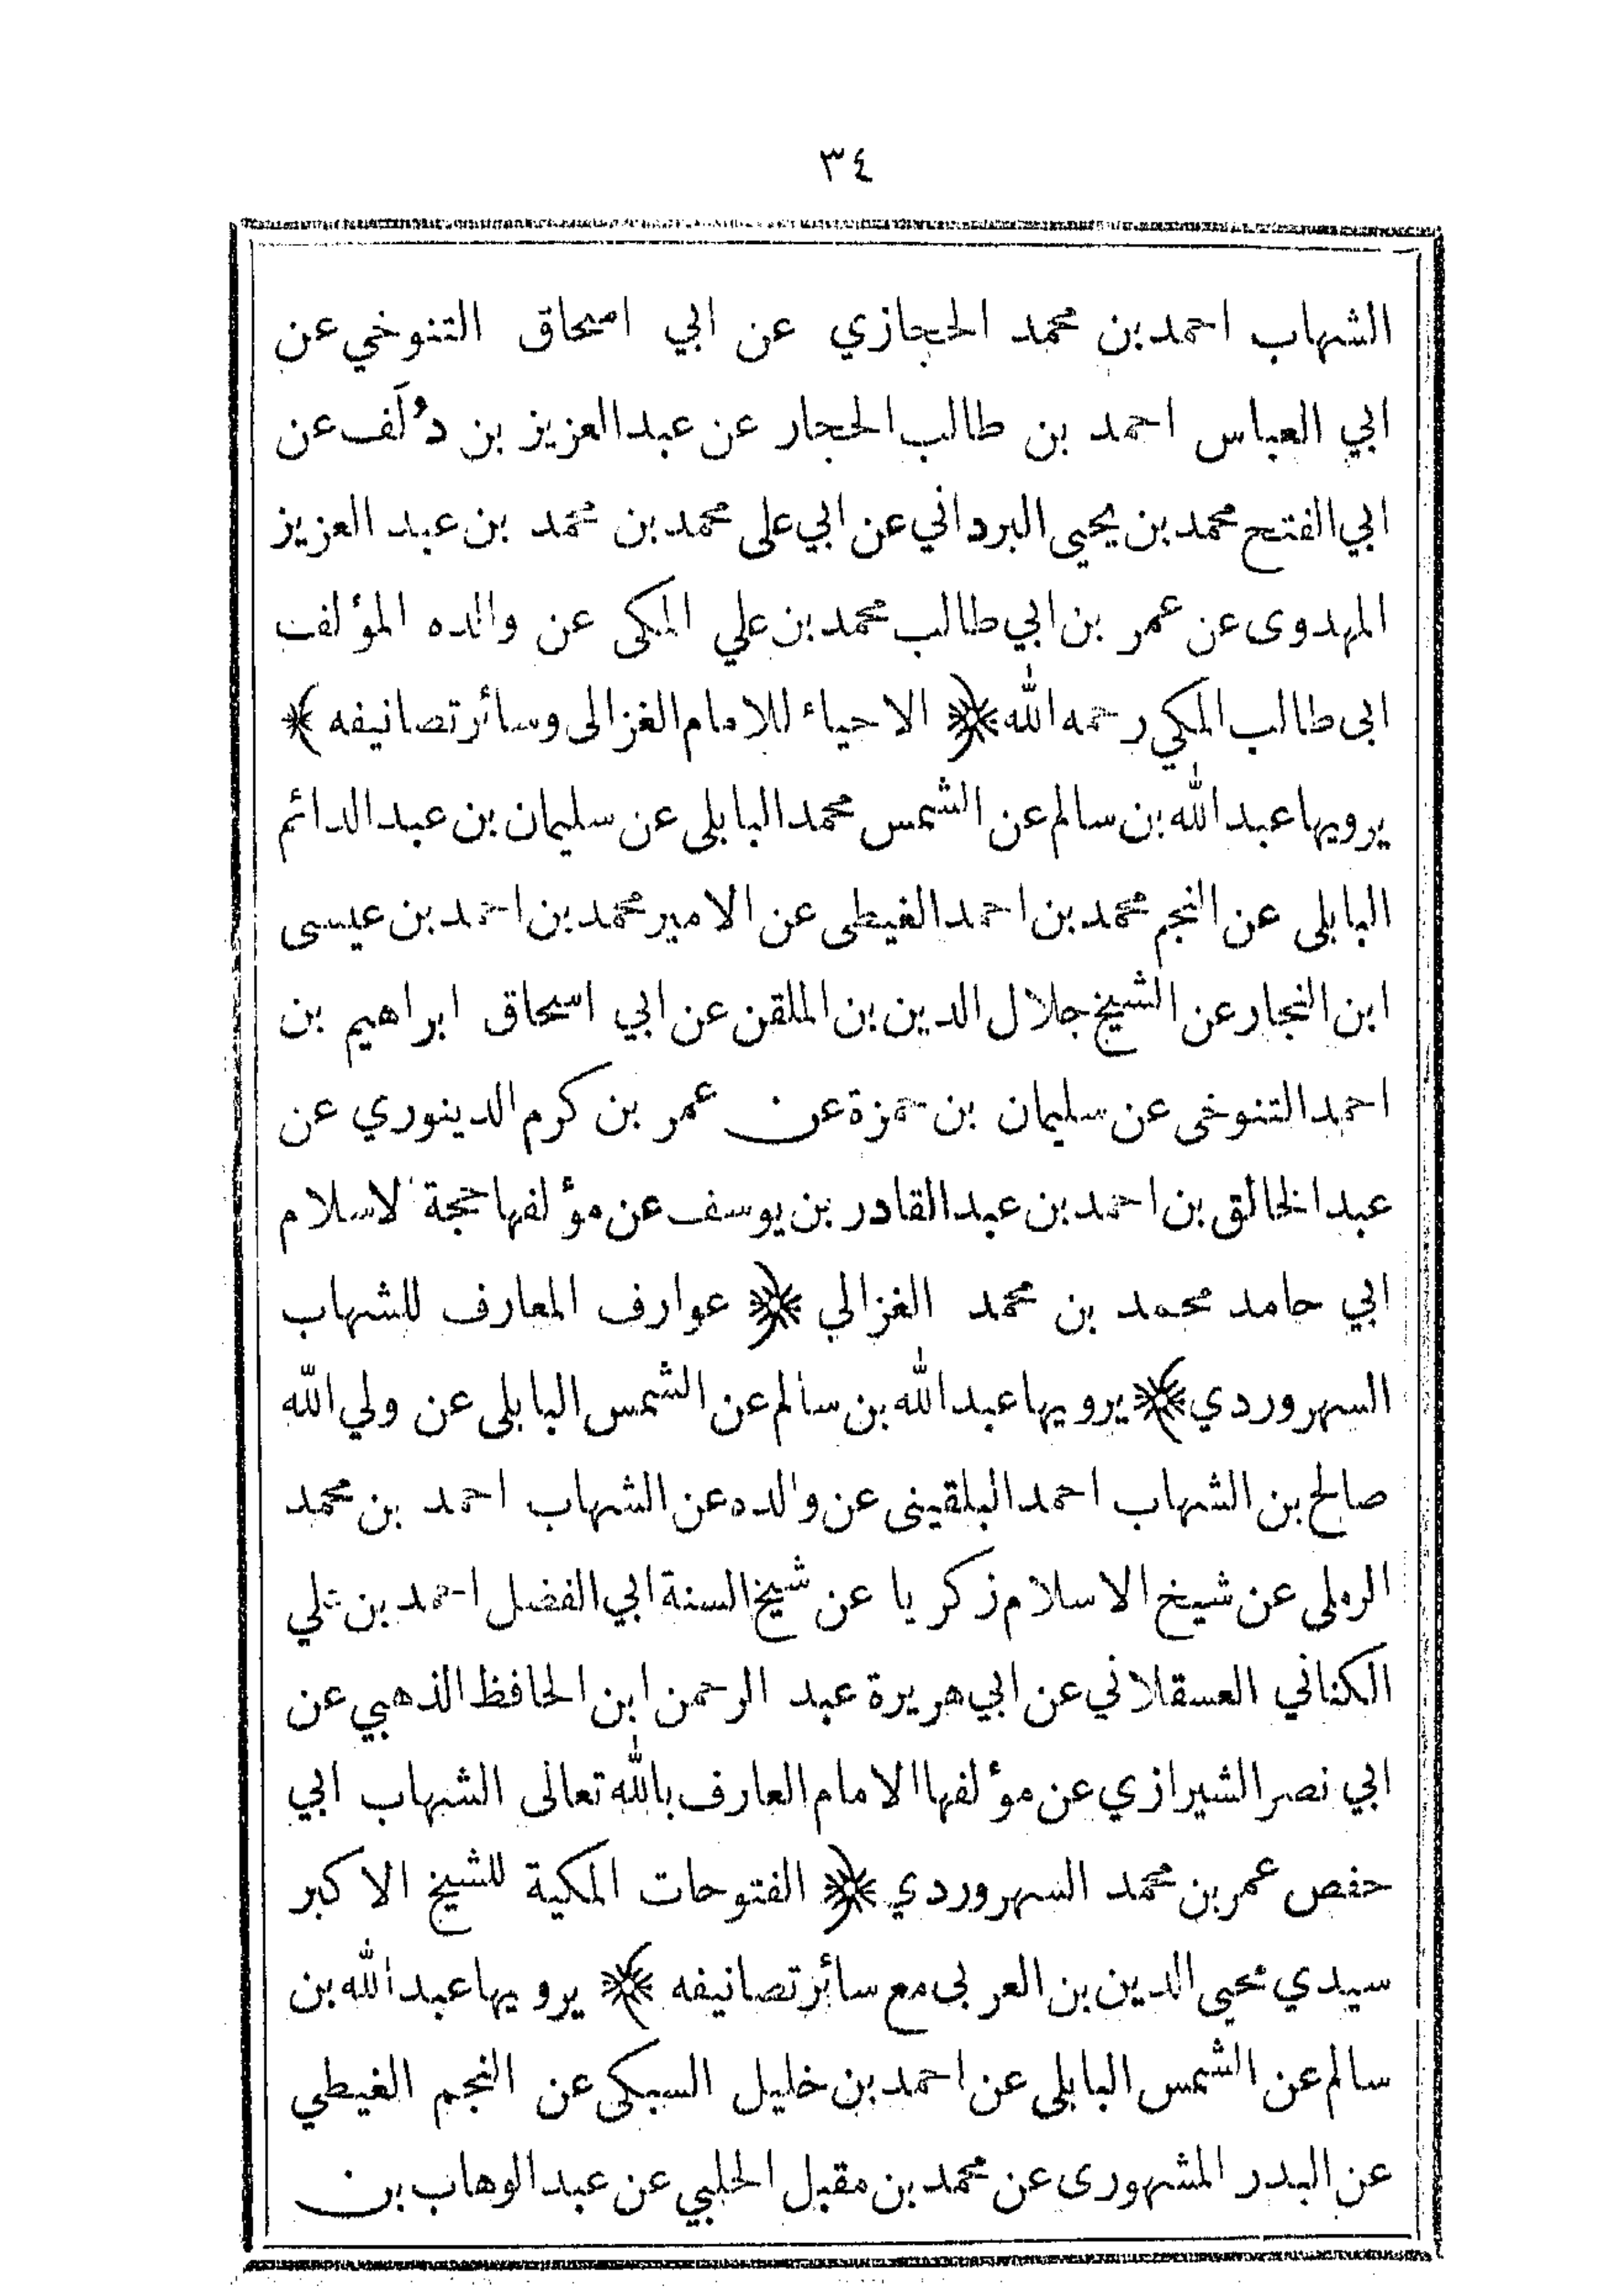 ٣٤
الشهاب احمد بن محمد الحجازي عن ابي اسحاق التنوخي عن
ابي العباس احمد بن طالب الحجار عن عبد العزيز بن دُلَف عن
ابي الفتح محمد بن يحيى البرداني عن ابي على محمد بن محمد بن عبد العزيز
المهدوى عن عمر بن ابي طالب محمد بن علي المكى عن والده المؤلف
ابى طالب المكي رحمه الله ﴿ الاحياء للامام الغزالى وسائر تصانيفه ﴾
يرويها عبد الله بن سالم عن الشمس محمد البابلى عن سليمان بن عبد الدائم
البابلى عن النجم محمد بن احمد الغيطى عن الامير محمد بن احمد بن عيسى
ابن النجار عن الشيخ جلال الدين بن الملقن عن ابي اسحاق ابراهيم بن
احمد التنوخى عن سليمان بن حمزة عن عمر بن كرم الدينوري عن
عبد الخالق بن احمد بن عبد القادر بن يوسف عن مؤلفها حجة لاسلام
ابي حامد محمد بن محمد الغزالي ﴿ عوارف المعارف للشهاب
السهروردي ﴾ يرويها عبد الله بن سالم عن الشمس البابلى عن ولي الله
صالح بن الشهاب احمد البلقينى عن والده عن الشهاب احمد بن محمد
الرملى عن شيخ الاسلام زكريا عن شيخ السنة ابي الفضل احمد بن علي
الكناني العسقلاني عن ابي هريرة عبد الرحمن ابن الحافظ الذهبي عن
ابي نصر الشيرازي عن مؤلفها الامام العارف بالله تعالى الشهاب ابي
حفص عمر بن محمد السهروردي ﴿ الفتوحات المكية للشيخ الاكبر
سيدي محيى الدين بن العربى مع سائر تصانيفه ﴾ يرويها عبد الله بن
سالم عن الشمس البابلى عن احمد بن خليل السبكى عن النجم الغيطي
عن البدر المشهورى عن محمد بن مقبل الحلبي عن عبد الوهاب بن